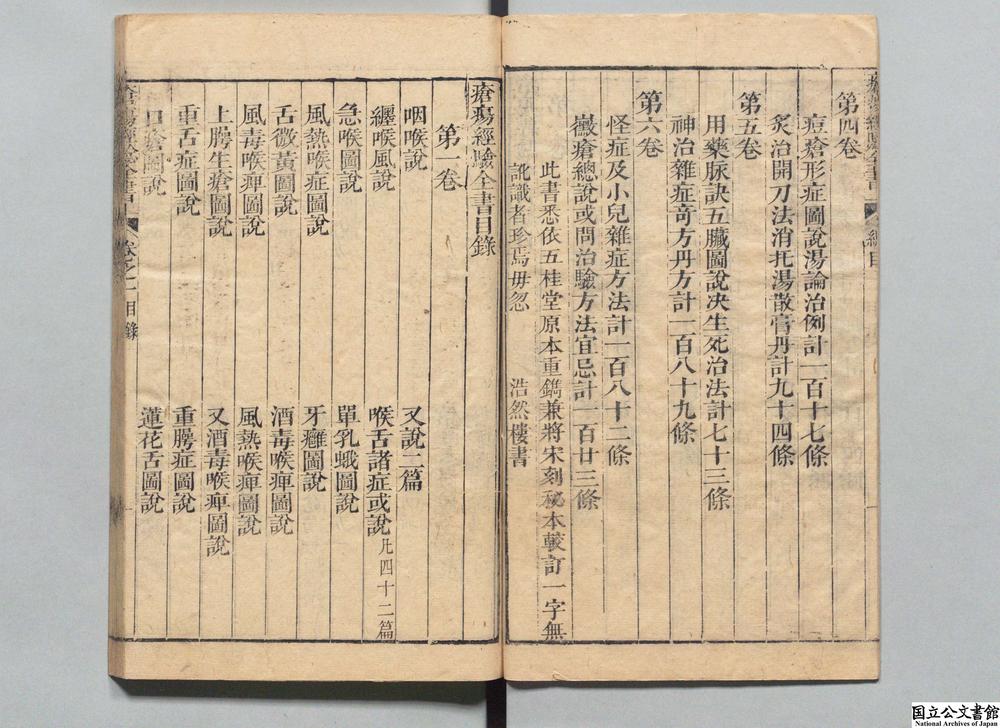 第四卷
痘瘡形症圖說湯論治例計一百十七條
炙治開刀法消托湯散膏丹計九十四條
第五卷
用藥脉訣五臟圖說决生死治法計七十三條
神治雜症奇方丹方計一百八十九條
第六卷
怪症及小兒雜症方法計一百八十二條
黴瘡總說或問治驗方法宜忌計一百廿三條
此書悉依五桂堂原本重鐫兼將宋刻秘本較訂一字無
訛識者珍焉毋忽 浩然樓書
瘡瘍經驗全書目錄
第一卷
咽喉說 又說二篇
纏喉風說 喉舌諸症或說 凡四十二篇
急喉圖說 單乳蛾圖說
風熱喉症圖說 牙癰圖說
舌微黃圖說 酒毒喉痺圖說
風毒喉痺圖說 風熱喉痺圖說
上腭生瘡圖說 又酒毒喉痺圖說
重舌症圖說 重腭症圖說
口瘡圖說 蓮花舌圖說
瘡瘍經驗全書 卷之一目錄
国立公文書館
National Archives of Japan